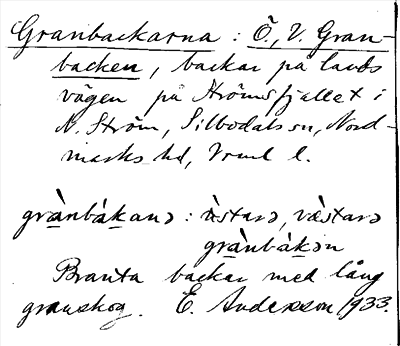 Granbackarna : Ö, V. Gran-
backen, backar på lands
vägen på Strömsfjället i
N. Ström, Silbodals sn, Nord-
marks hd, Vrml l.
grànbàkanə : ̀östarə, væ̀starə
grànbàkən
Branta backar med lång
granskog. E. Andersson 1933.